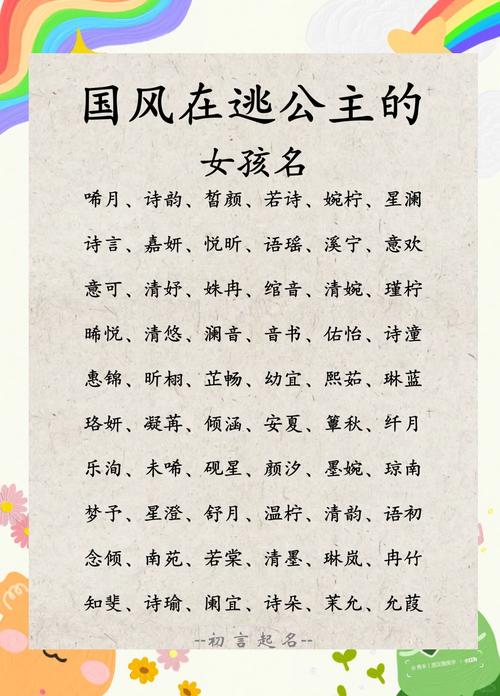 国风在逃公主的
女孩名
唏月、诗韵、皙颜、若诗、婉柠、星澜
诗言、嘉妍、悦昕、语瑶、溪宁、意欢
意可、清妤、姝冉、绾音、清婉、瑾柠
晞悦、清悠、澜音、音书、佑怡、诗潼
惠锦、昕栩、芷畅、幼宜、熙茹、琳蓝
珞妍、凝苒、倾涵、安夏、簟秋、纤月
乐洵、未唏、砚星、颜汐、墨婉、琼南
梦予、星澄、舒月、温柠、清韵、语初
念倾、南苑、若棠、清墨、琳岚、冉竹
知斐、诗瑜、阑宜、诗朵、茉允、允葭
--初言起名--